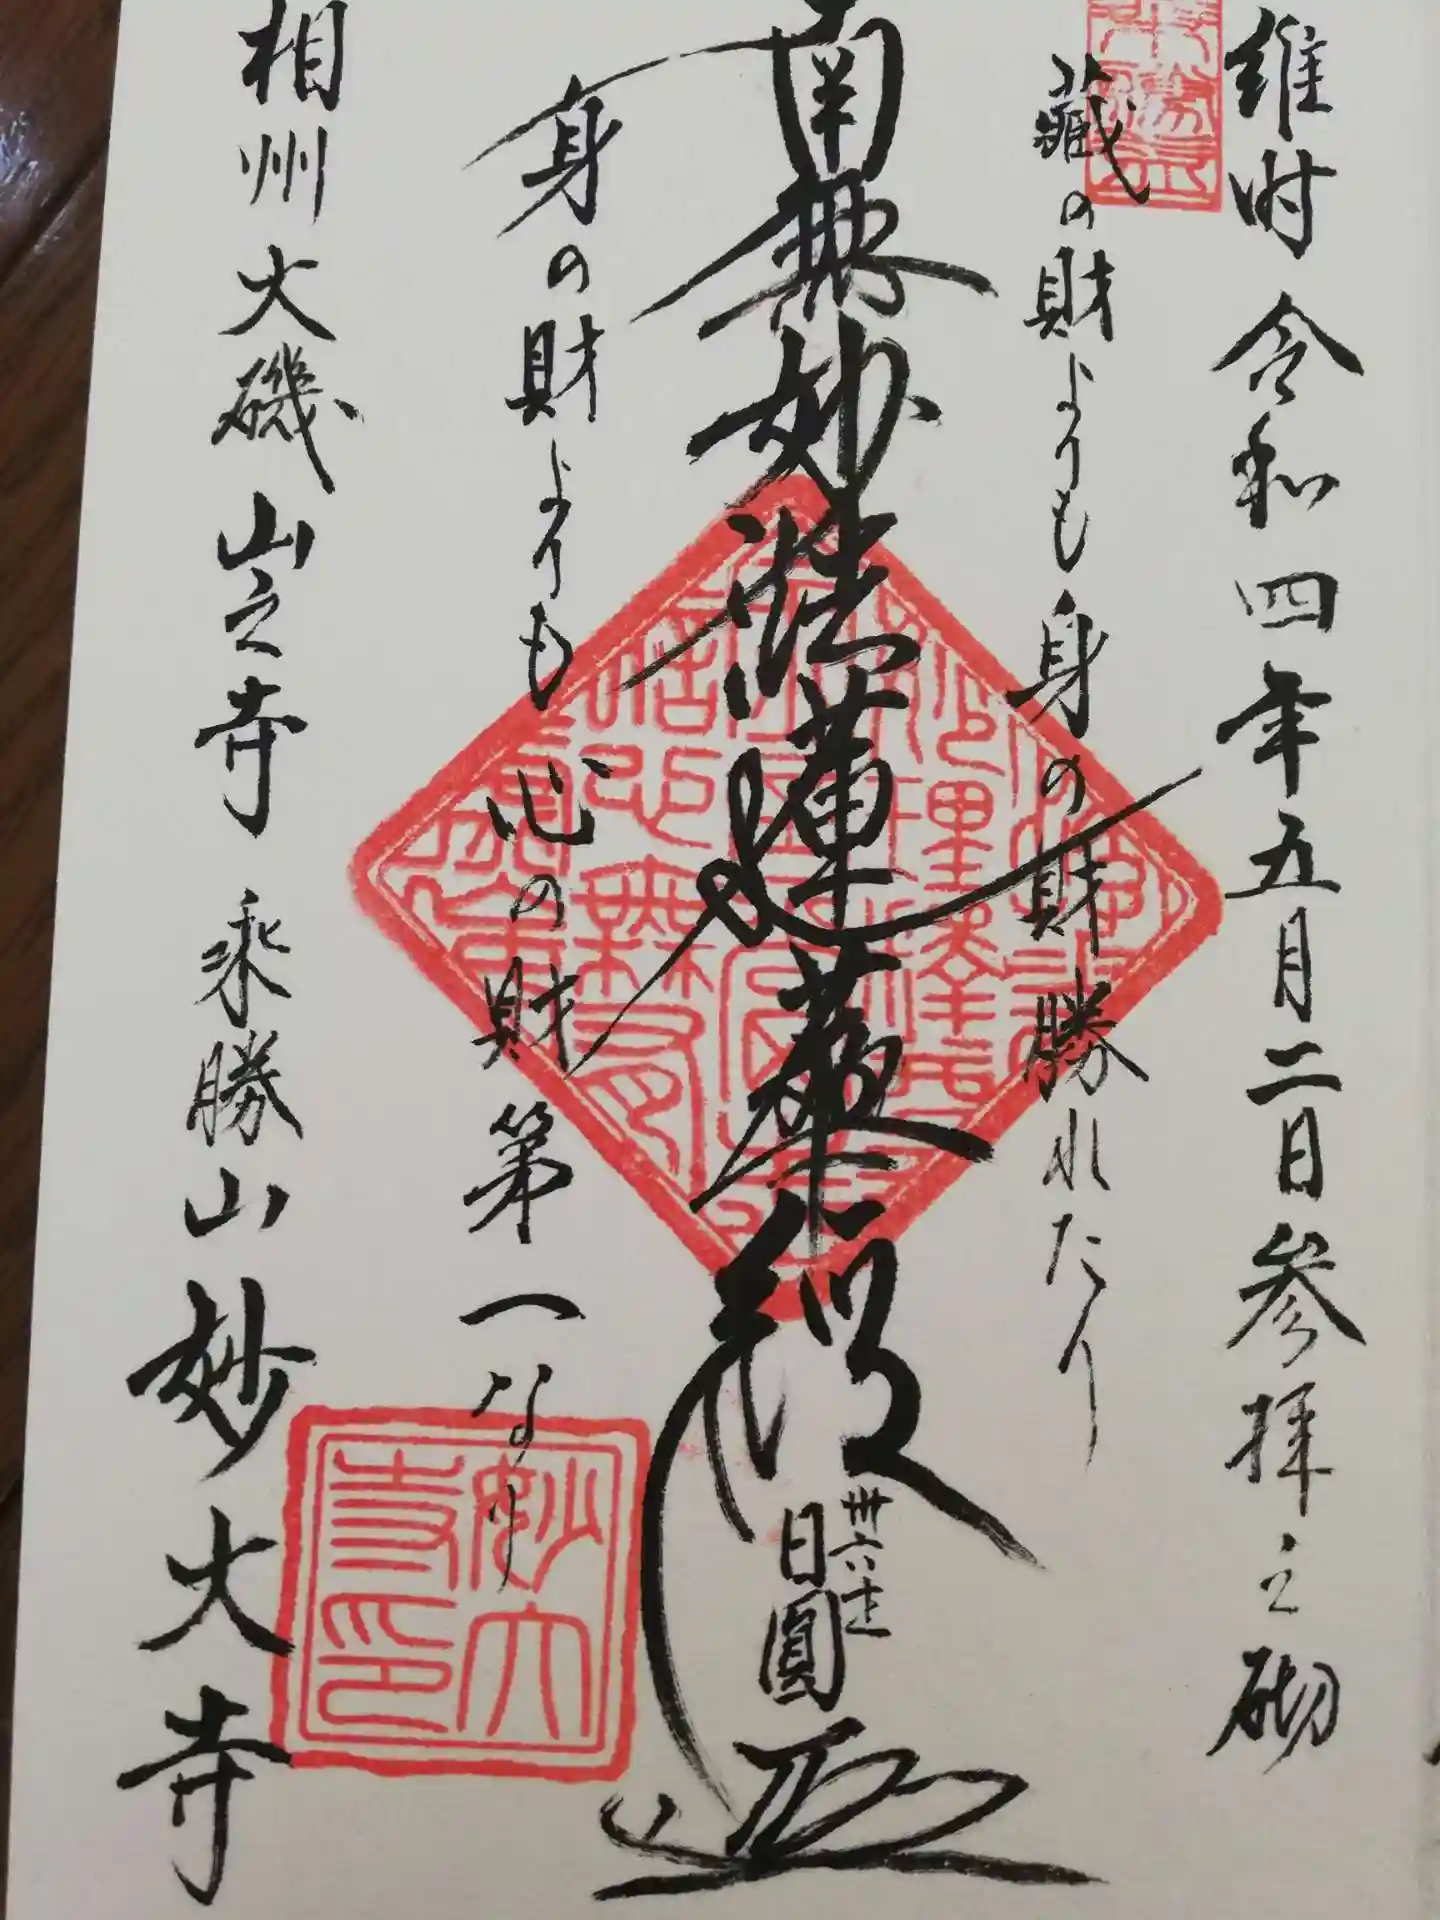 維時 令和四年五月二日参拝之砌
蔵の財よりも身の財勝れたり
南無妙法蓮華経
卅六主
日圓
身の財よりも心の財第一なり
相州大磯 山之寺 乘勝山 妙大寺
妙大寺印